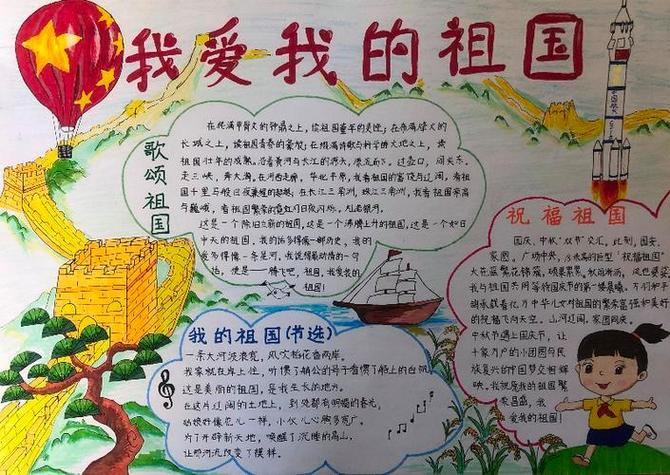 我爱我的祖国
歌颂祖国
在爬满甲骨文的钟鼎之上,读祖国童年的灵性;在布满烽火的
长城之上,读祖国青春的豪放;在缀满诗歌与科学的大地之上,读
祖国壮年的成熟。沿着黄河与长江的源头,漂流而下,过壶口,闯关东,
走三峡,奔大海。在河西走廊,华北平原,我看祖国的富饶与辽阔,看祖
国千里马般日夜兼程的超越;在长江三角洲,珠江三角洲,我看祖国崇高
与巍峨,看祖国繁荣的霓虹灯日夜闪烁,灿若银河。
这是一个除旧立新的祖国,这是一个沸腾上升的祖国,这是一个如日
中天的祖国,我的
一条星河,我
腾飞吧,祖国,我爱我的
祖国!
祝福祖国
国庆、中秋"双节"交汇,此刻,国安、
家圆。广场中央,
的巨型"祝福祖国"
大花篮繁花锦簇,硕果累累,
我与祖国共同等待国庆节的第一缕晨曦。万们和平
鸽承载着亿万中华儿女对祖国的繁荣富强和美好
的祝福飞向天空。山河辽阔,家国同庆。
中秋节遇上国庆节,让
十家万户的小团圆与民
族复兴的中国梦交相辉
映。我祝愿我的祖国繁
荣昌盛,我
爱我的祖国!
我的祖国(节选)
一条大河波浪宽,风吹稻花香两岸。
我家就在岸上住,听惯了艄公的号子看惯了船上的白帆。
这是美丽的祖国,是我生长的地方。
在这片辽阔的土地上,到处都有明媚的春光。
姑娘好像花儿一样,小伙儿心胸多宽广。
为了开辟新天地,唤醒了沉睡的高山,
让那河流改变了模样。
中国航天